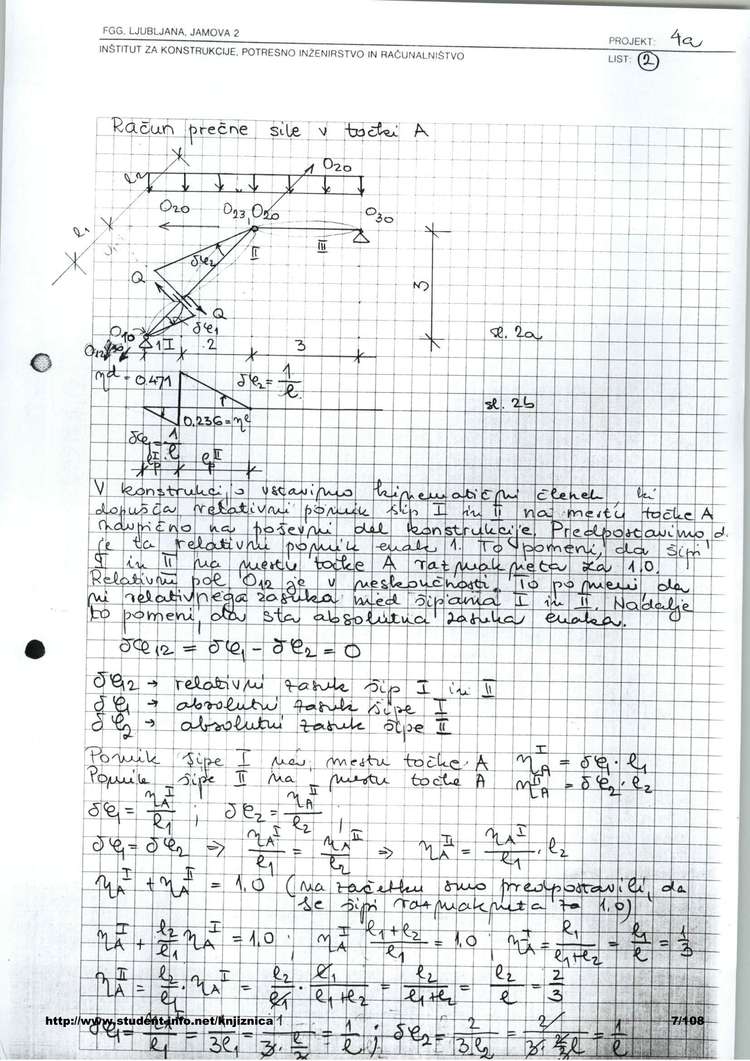 FGG, LJUBLJANA, JAMOVA 2
INŠTITUT ZA KONSTRUKCIJE, POTRESNO INŽENIRSTVO IN RAČUNALNIŠTVO
PROJEKT: 4a
LIST: 2
Račun prečne sile v točki A
O20
l2
O20
O23, O20
O30
l1
II
III
δφ2
Q
Q
3
δφ1
O10
1 I
2
3
sl. 2a
ηd = 0.471
δφ2 = 1/l
sl. 2b
0.236 = ηl
δφ1 = 1/l
V konstrukcijo vstavimo kinematični členek, ki
dopušča relativni pomik šip I in II na mestu točke A
navpično na poševni del konstrukcije. Predpostavimo, d.
je ta relativni pomik enak 1. To pomeni, da šipi
I in II na mestu točke A razmakneta za 1.0.
Relativni pol O12 je v neskončnosti. To pomeni da
ni relativnega zasuka med šipama I in II. Nadalje
to pomeni, da sta absolutna zasuka enaka.
δφ12 = δφ1 - δφ2 = 0
δφ12 → relativni zasuk šip I in II
δφ1 → absolutni zasuk šipe I
δφ2 → absolutni zasuk šipe II
Pomik šipe I na mestu točke A ηA^I = δφ1 · l1
Pomik šipe II na mestu točke A ηA^II = δφ2 · l2
δφ1 = ηA^I/l1 ; δφ2 = ηA^II/l2 ;
δφ1 = δφ2 ⇒ ηA^I/l1 = ηA^II/l2 ⇒ ηA^II = ηA^I/l1 · l2
ηA^I + ηA^II = 1.0 (na začetku smo predpostavili, da
se šipi razmakneta za 1.0)
ηA^I + l2/l1 ηA^I = 1.0 ; ηA^I (l1+l2)/l1 = 1.0 ; ηA^I = l1/(l1+l2) = l1/l = 1/3
ηA^II = l2/l1 · ηA^I = l2/l1 · l1/(l1+l2) = l2/(l1+l2) = l2/l = 2/3
http://www.student-info.net/knjiznica
7/108
δφ1 = ηA^I/l1 = 1/3l1 = 1/l ; δφ2 = 2/3l2 = 1/l